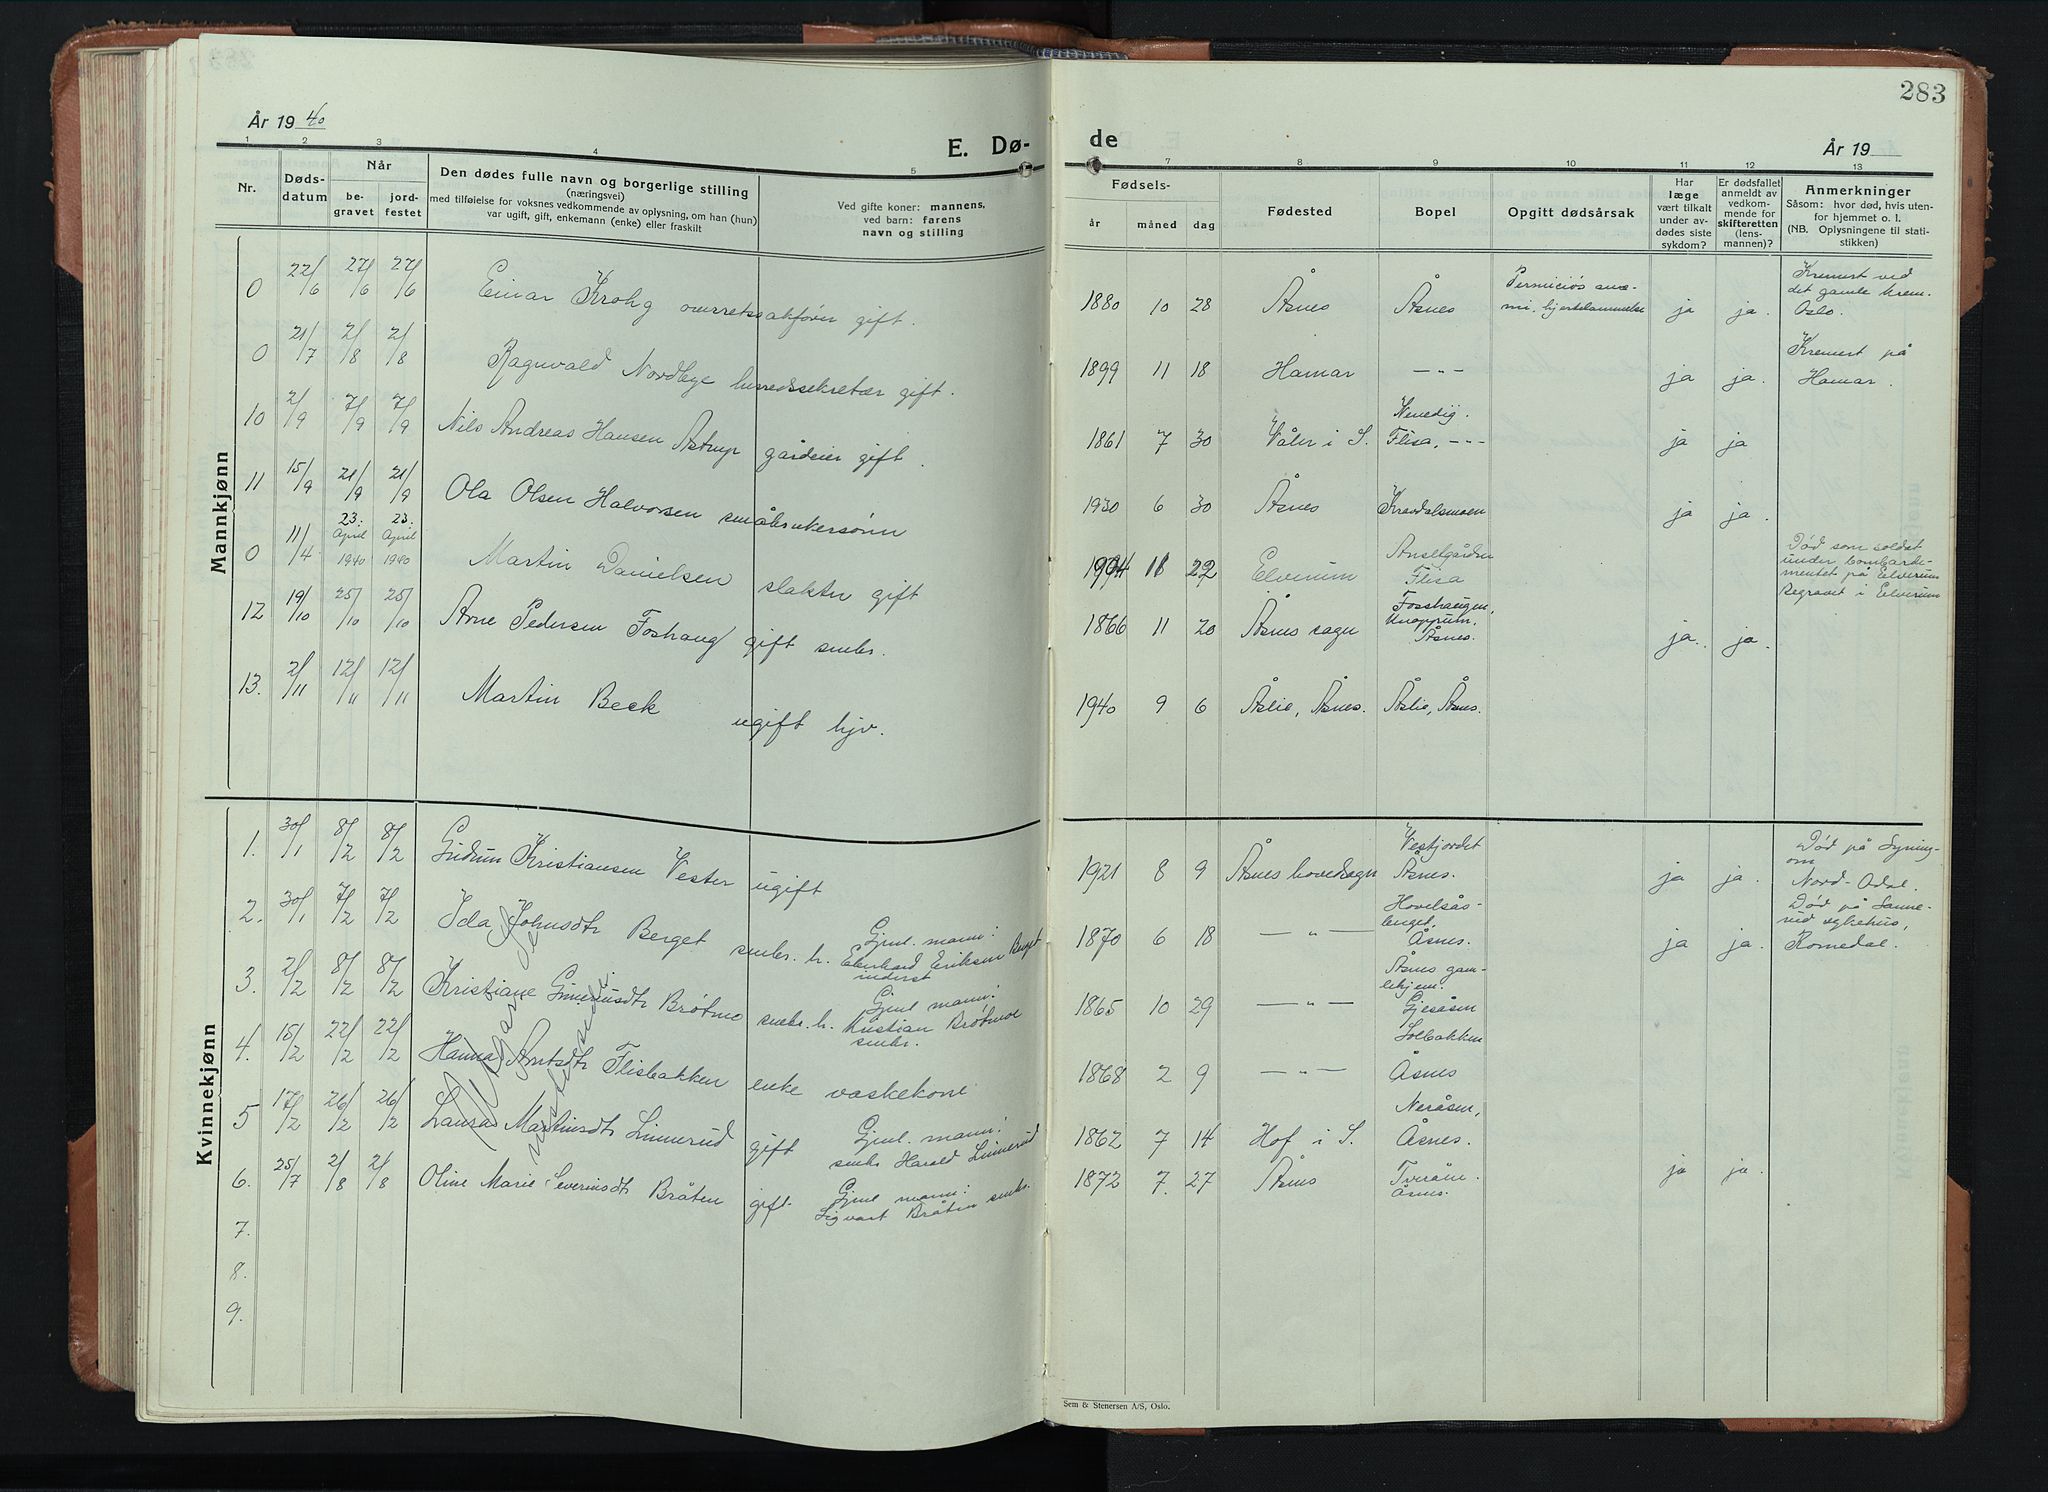 283
År 1940
E. Dø-
de
År 19
1 2 3 4 5 7 8 9 10 11 12 13
Nr.
Døds-
datum
Når
be-
gravet
jord-
festet
Den dødes fulle navn og borgerlige stilling
(næringsvei)
med tilføielse for voksnes vedkommende av oplysning, om han (hun)
var ugift, gift, enkemann (enke) eller fraskilt
Ved gifte koner: mannens,
ved barn: farens
navn og stilling
Fødsels-
år måned dag
Fødested
Bopel
Opgitt dødsårsak
Har
læge
vært tilkalt
under av-
dødes siste
sykdom?
Er dødsfallet
anmeldt av
vedkom-
mende for
skifteretten
(lens-
mannen)?
Anmerkninger
Såsom: hvor død, hvis uten-
for hjemmet o. l.
(NB. Oplysningene til stati-
stikken)
Mannkjønn
0 22/6 27/6 27/6 Einar Krohg overretssakfører gift. 1880 10 28 Åsnes Åsnes Perniciøs anæ-
mi, hjertelammelse ja ja. Kremert ved
det gamle krem.
Oslo.
0 21/7 2/8 2/8 Ragnvald Nordbye herredssekretær gift. 1899 11 18 Hamar —"— ja ja. Kremert på
Hamar.
10 2/9 7/9 7/9 Nils Andreas Hansen Astrup gårdeier gift. 1861 7 30 Våler i S. Venedig.
Flisa, -"- ja ja
11 15/9 21/9 21/9 Ola Olsen Halvorsen småbrukersønn 1930 6 30 Åsnes Kravdalsmoen ja ja.
0 11/4 23. April 1940 23. April 1940 Martin Danielsen slakter gift 1904 11 22 Elverum
Flisa Død som soldat
under bombarde-
mentet på Elverum
Begravet i Elverum
12 19/10 25/10 25/10 Arne Pedersen Foshaug gift smbr. 1866 11 20 Åsnes sogn Fosshaugen,
Knapprum,
Åsnes. ja. ja.
13. 2/11 12/11 12/11 Martin Beck ugift hjv. 1940 9 6 Åslie, Åsnes. Åslie, Åsnes.
Kvinnekjønn
1. 30/1 8/2 8/2 Gudrun Kristiansen Vester ugift 1921 8 9 Åsnes hovedsogn Vestjordet
Åsnes. ja ja. Død på Syning-
om
Nord-Odal.
2. 30/1 7/2 7/2 Ida Johnsdtr Berget smbr. h. Gjml. mann:
Eberhard Eriksen Berget
inderst 1870 6 18 —"— Hovelsås-
berget,
Åsnes. ja ja. Død på Sanne-
rud sykehus,
Romedal.
3. 2/2 8/2 8/2 Kristiane Gunerusdtr Brøtmo smbr. h. Gjml. mann:
Kristian Brøtmoe
smbr. 1865 10 29 —"— Åsnes gam-
lehjem.
Gjesåsen
4. 15/2 22/2 22/2 Hanna Arntsdtr Flisbakken enke vaskekone 1868 2 9 —"— Solbakken
Åsnes
5 17/2 26/2 26/2 Martinusdtr Linnerud gift Gjml. mann:
smbr Harald Linnerud 1862 7 14 Hof i S. Neråsen,
Åsnes.
6. 25/7 2/8 2/8 Oline Marie Severinsdtr Bråten gift Gjml mann:
Sigvart Bråten smbr. 1872 7. 27 Åsnes Tveråen.
Åsnes. ja ja.
7.
8.
9.
Sem & Stenersen A/S, Oslo.